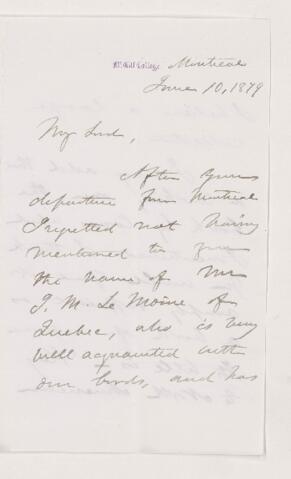 McGill College Montreal
June 10, 1879
My Lord,
After your
departure from Montreal
I regretted not having
mentioned to you
the name of Mr
J. M. Le Moine of
Quebec, who is very
well acquainted with
our birds, and has